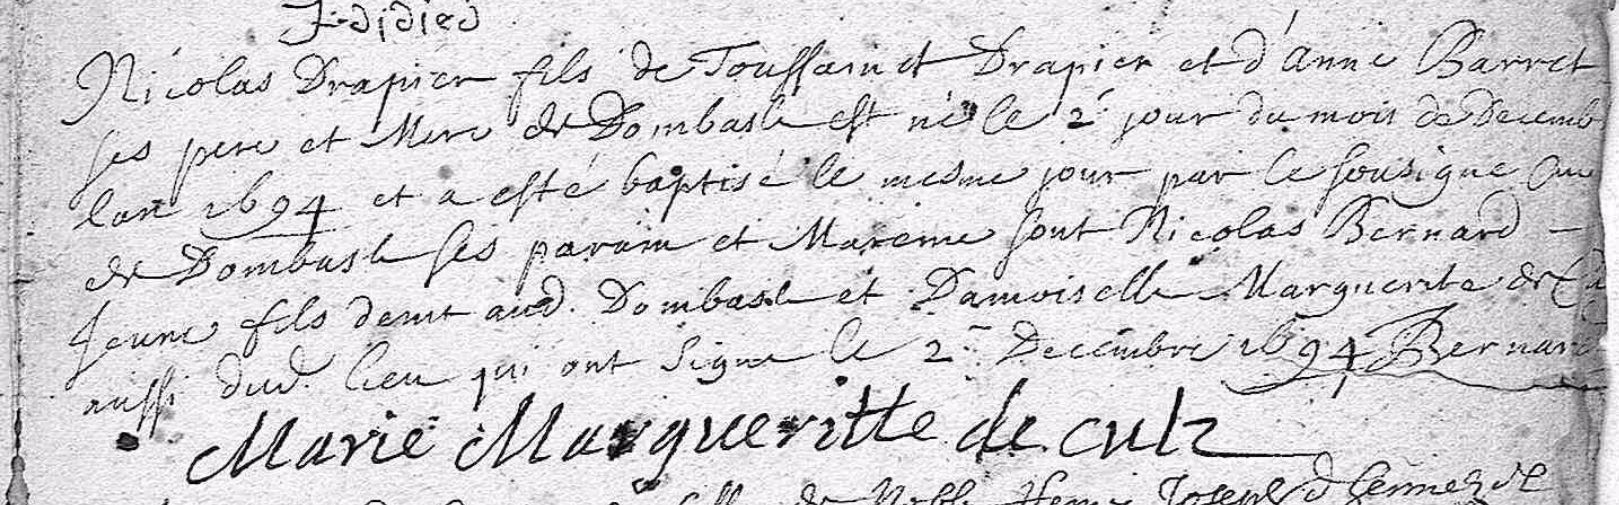 J. didied
Nicolas Drapier fils de Toussainct Drapier et d'Anne Barret
ses pere et Mere de Dombasle est né le 2e jour du mois de Decemb
lan 1694 et a esté baptisé le mesme jour par le sousigne Cure
de Dombasle ses parain et Mareine sont Nicolas Bernard -
Jeune fils demt aud. Dombasle et Damoiselle Marguerite de
aussi dud. lieu qui ont signe le 2e Decembre 1694 Bernard
Marie Margueritte de cult
de Noble Henry Joseph d